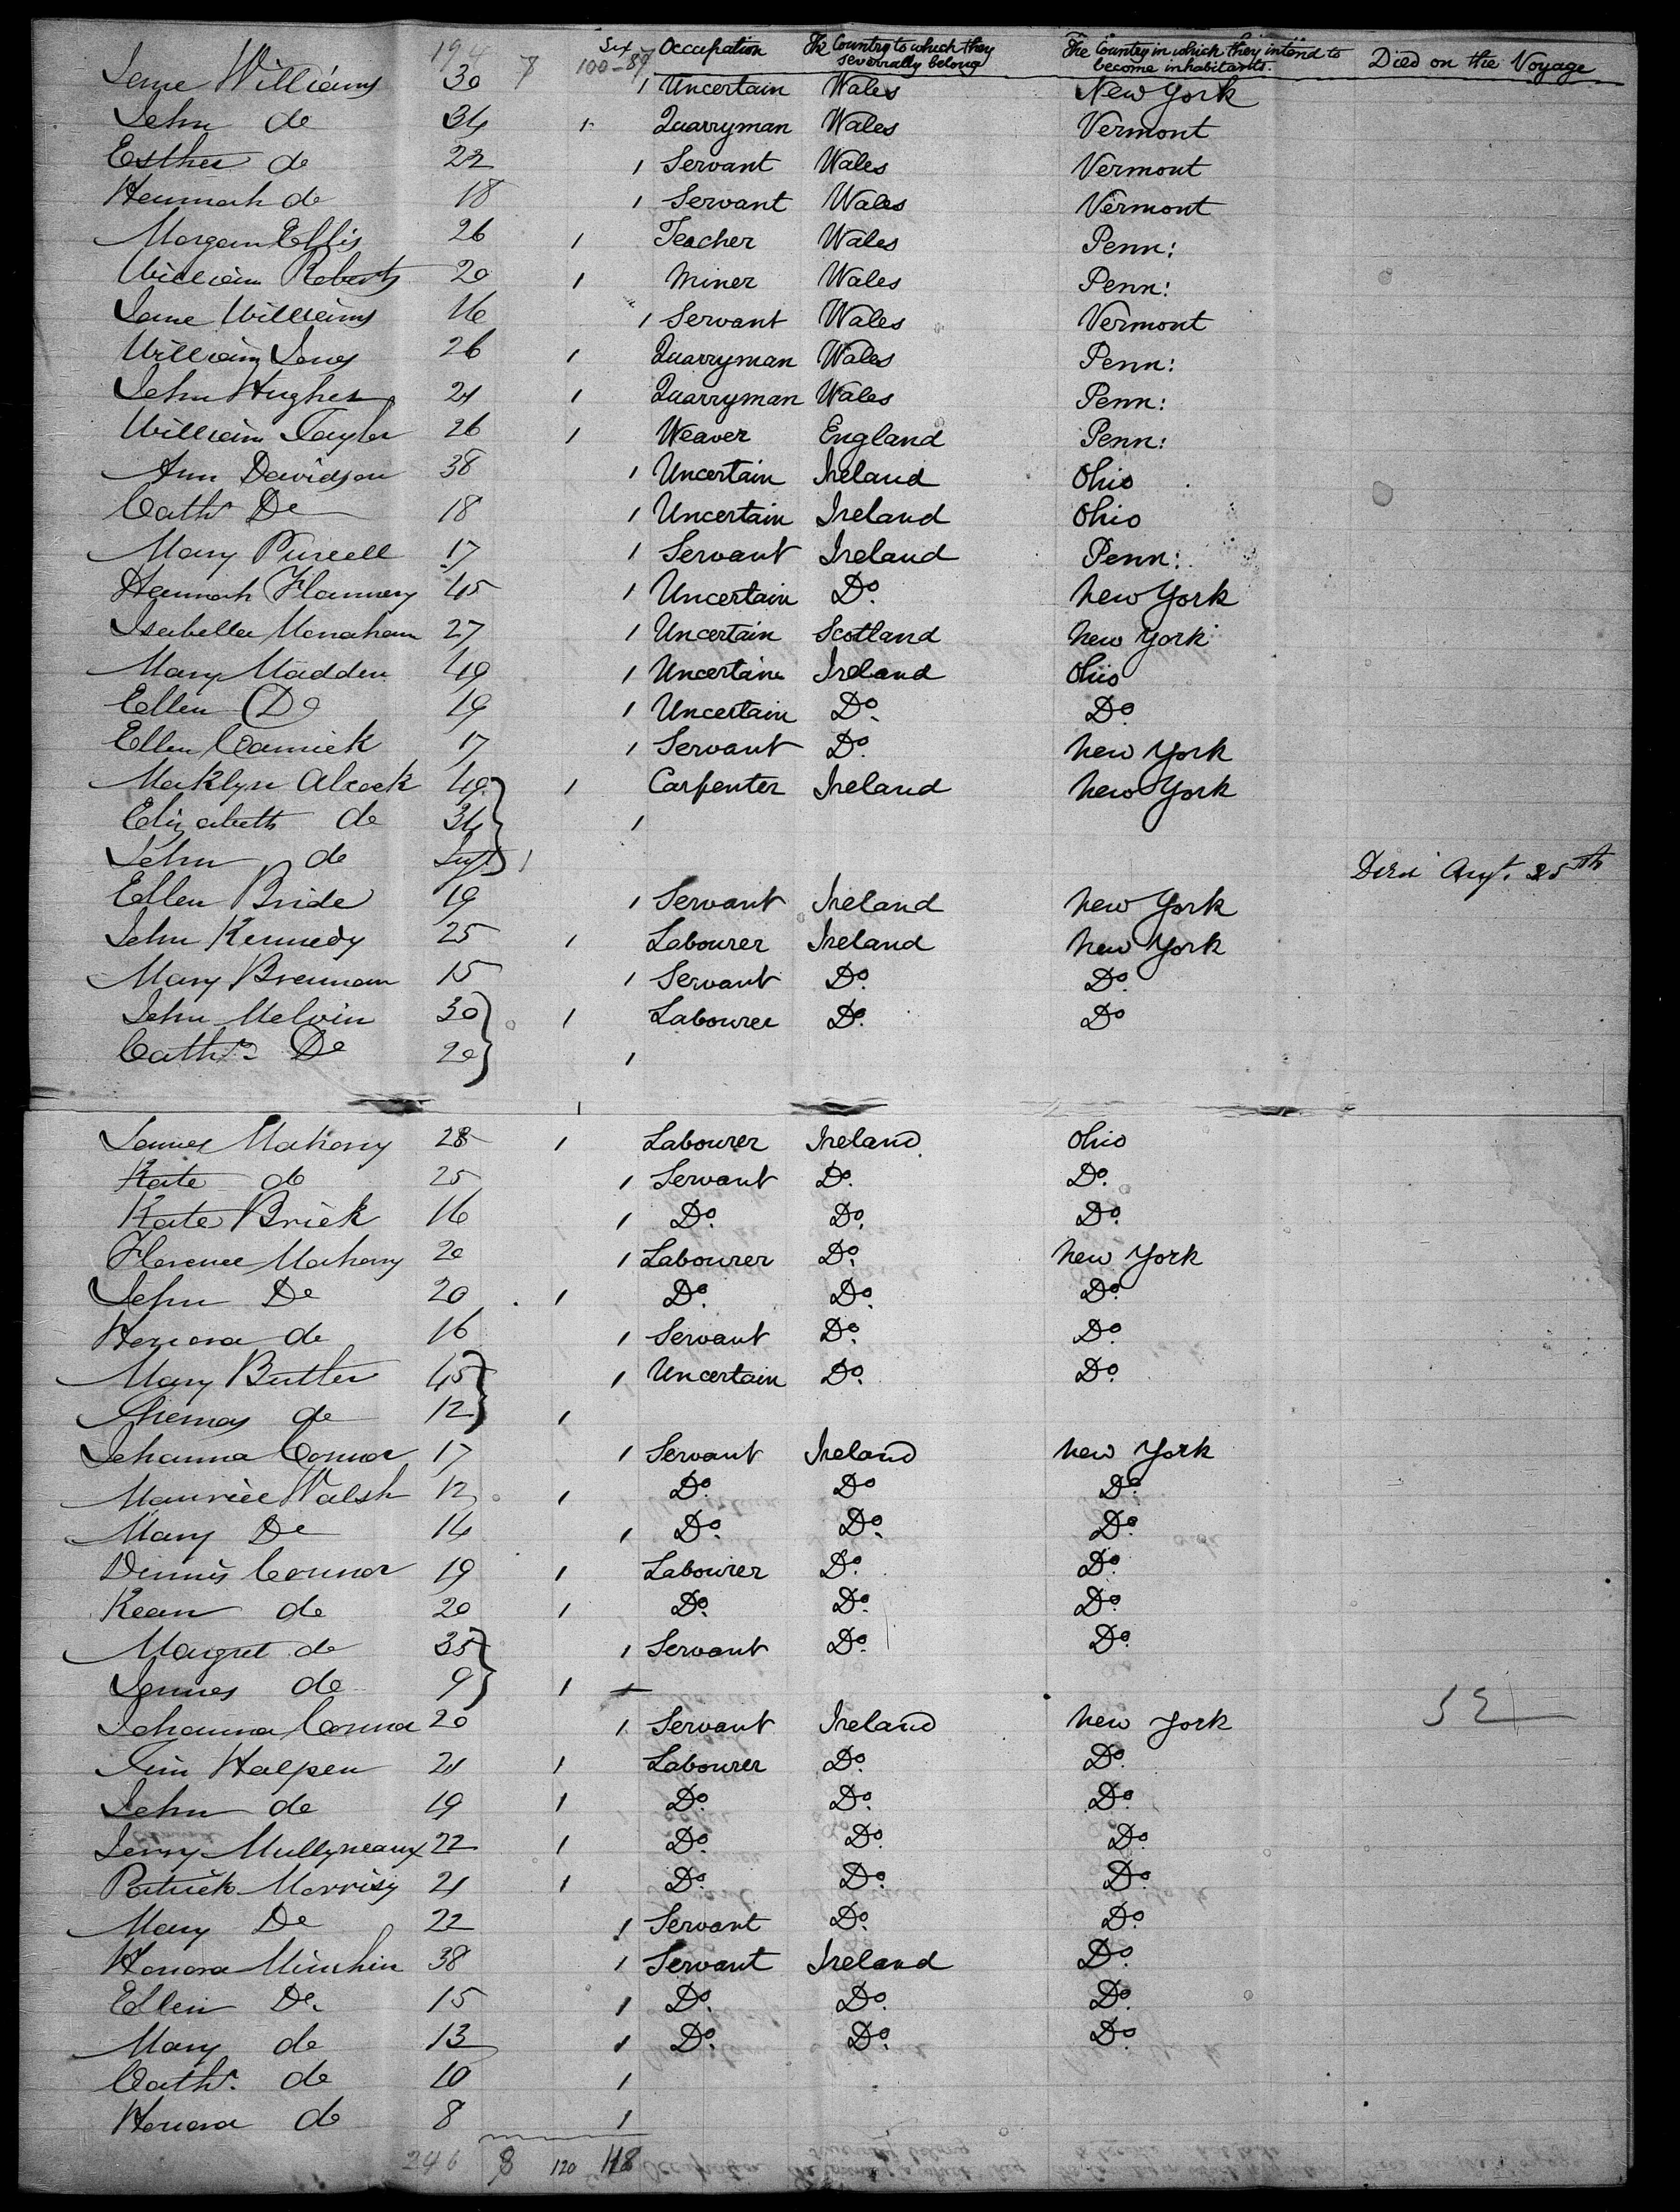 194 7 Sex 100-87 Occupation The Country to which they severally belong The Country in which they intend to become inhabitants. Died on the Voyage
Jane Williams 30 1 Uncertain Wales New York
John do 34 1 Quarryman Wales Vermont
Esther do 22 1 Servant Wales Vermont
Hannah do 18 1 Servant Wales Vermont
Morgan Ellis 26 1 Teacher Wales Penn:
William Roberts 20 1 Miner Wales Penn:
Jane Williams 16 1 Servant Wales Vermont
William Jones 26 1 Quarryman Wales Penn:
John Hughes 21 1 Quarryman Wales Penn:
William Taylor 26 1 Weaver England Penn:
Ann Davidson 38 1 Uncertain Ireland Ohio
Cath. Do 18 1 Uncertain Ireland Ohio
Mary Purcell 17 1 Servant Ireland Penn:
Hannah Flannery 45 1 Uncertain Do. New York
Isabella Monaham 27 1 Uncertain Scotland New York
Mary Madden 49 1 Uncertain Ireland Ohio
Ellen Do 19 1 Uncertain Do. Do.
Ellen 17 1 Servant Do. New York
Maklyn Alcock 40 1 Carpenter Ireland New York
Elizabeth do 34 1
John do Inft 1 Died Augt. 25th
Ellen Bride 19 1 Servant Ireland New York
John Kennedy 25 1 Labourer Ireland New York
Mary Brennan 15 1 Servant Do. Do.
John Melvin 30 1 Labourer Do. Do
Cathr. Do 20 1
1
James Mahony 28 1 Labourer Ireland Ohio
Kate do 25 1 Servant Do. Do.
Kate Brick 16 1 Do. Do. Do.
Florence Mahony 20 1 Labourer Do. New York
John Do 20 1 Do. Do. Do.
Honora do 16 1 Servant Do. Do.
Mary Butler 45 1 Uncertain Do. Do.
Thomas do 12 1
Johanna Connor 17 1 Servant Ireland New York
Maurice Walsh 12 1 Do. Do Do.
Mary Do 14 1 Do. Do. Do.
Dennis Connor 19 1 Labourer Do. Do.
Kean do 20 1 Do. Do. Do.
Margret do 35 1 Servant Do. Do.
James do 9 1
Johanna Connor 20 1 Servant Ireland New York
Tim Halpen 21 1 Labourer Do. Do.
John do 19 1 Do. Do. Do.
Jerry Mullyneaux 22 1 Do. Do. Do.
Patrick Morrisy 21 1 Do. Do. Do.
Mary Do 22 1 Servant Do. Do.
Honora Minihin 38 1 Servant Ireland Do.
Ellein Do. 15 1 Do. Do. Do.
Mary do 13 1 Do. Do. Do.
Cathr. do 10 1
Honora do 8 1
246 8 120 118